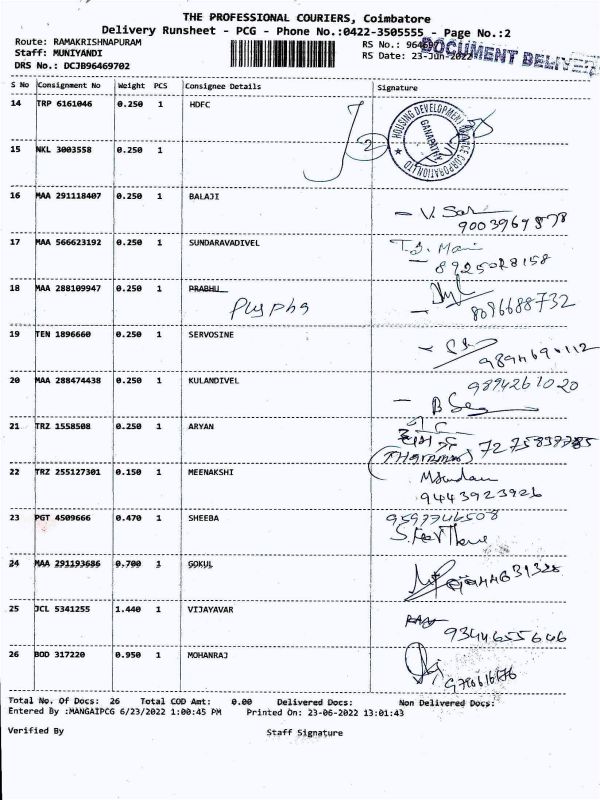 THE PROFESSIONAL COURIERS, Coimbatore
Delivery Runsheet - PCG - Phone No.:0422-3505555 - Page No.:2
Route: RAMAKRISHNAPURAM
Staff: MUNIYANDI
DRS No.: DCJB96469702
RS No.: 964697
RS Date: 23-Jun-2022
DOCUMENT DELIVERED
S No Consignment No Weight PCS Consignee Details Signature
14 TRP 6161046 0.250 1 HDFC
2
HOUSING DEVELOPMENT FINANCE CORPORATION LTD
GANAPATHY
15 NKL 3003558 0.250 1
16 MAA 291118407 0.250 1 BALAJI
17 MAA 566623192 0.250 1 SUNDARAVADIVEL
8925028158
18 MAA 288109947 0.250 1 PRABHU
8096688732
19 TEN 1896660 0.250 1 SERVOSINE
9894690112
20 MAA 288474438 0.250 1 KULANDIVEL
9894261020
21 TRZ 1558508 0.250 1 ARYAN
22 TRZ 255127301 0.150 1 MEENAKSHI
9443923926
23 PGT 4509666 0.470 1 SHEEBA
9597746508
24 MAA 291193686 0.700 1 GOKUL
25 JCL 5341255 1.440 1 VIJAYAVAR
9344655646
26 BOD 317220 0.950 1 MOHANRAJ
Total No. Of Docs: 26 Total COD Amt: 0.00 Delivered Docs: Non Delivered Docs:
Entered By :MANGAIPCG 6/23/2022 1:00:45 PM Printed On: 23-06-2022 13:01:43
Verified By Staff Signature